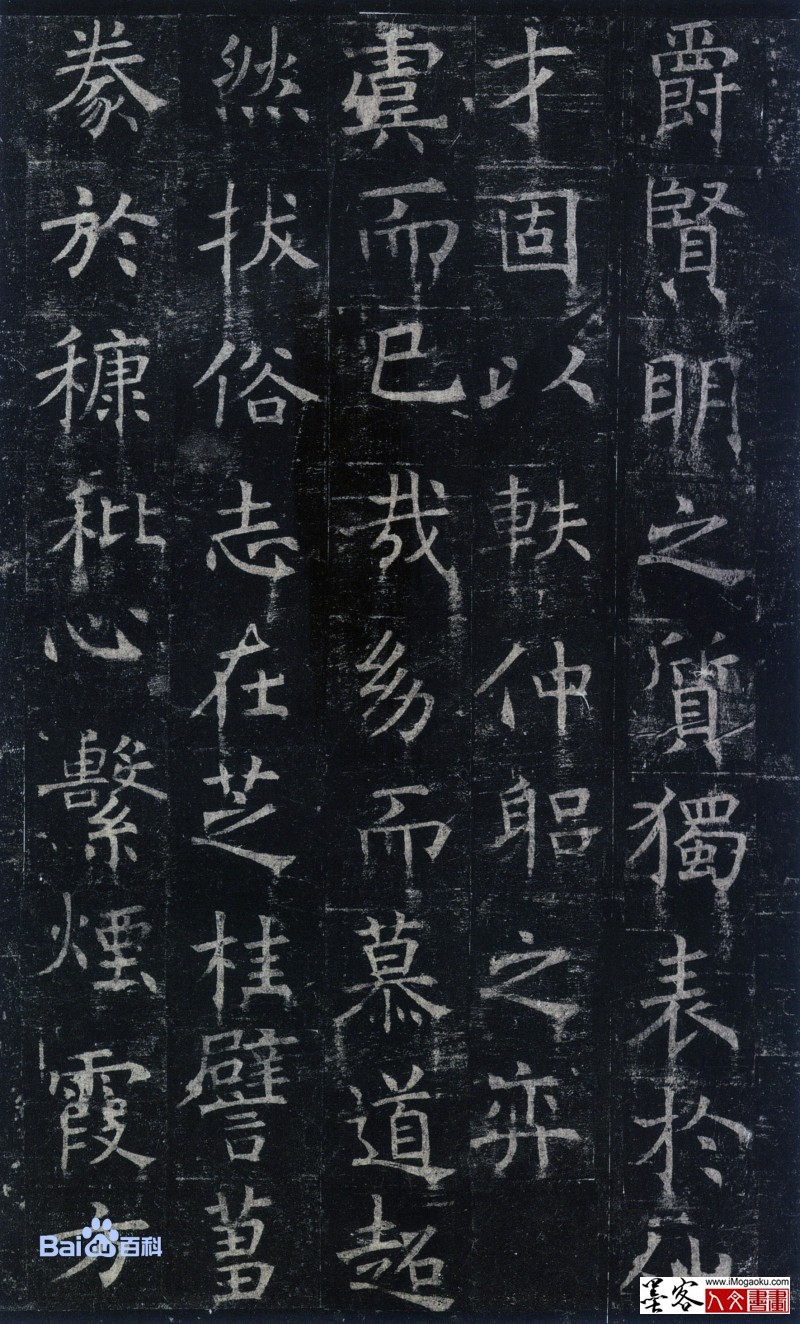 爵賢明之質獨表於仙
才固以軼仲躳之弈
虞而已哉幼而慕道超
然拔俗志在芝桂譬蒭
豢於穅秕心繫煙霞方
Bai du 百科
墨客
www.iMogaoku.com
人文書畫